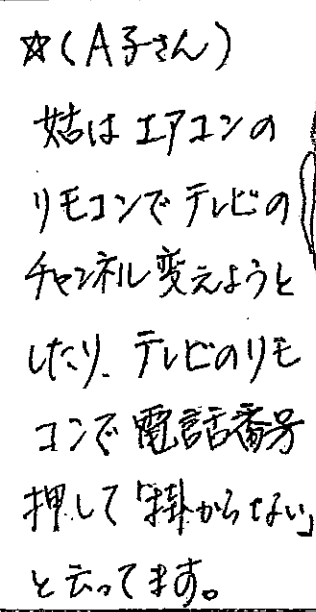 ☆(A子さん)
姑はエアコンの
リモコンでテレビの
チャンネル変えようと
したり、テレビのリモ
コンで電話番号
押して「掛からない」
と云ってます。